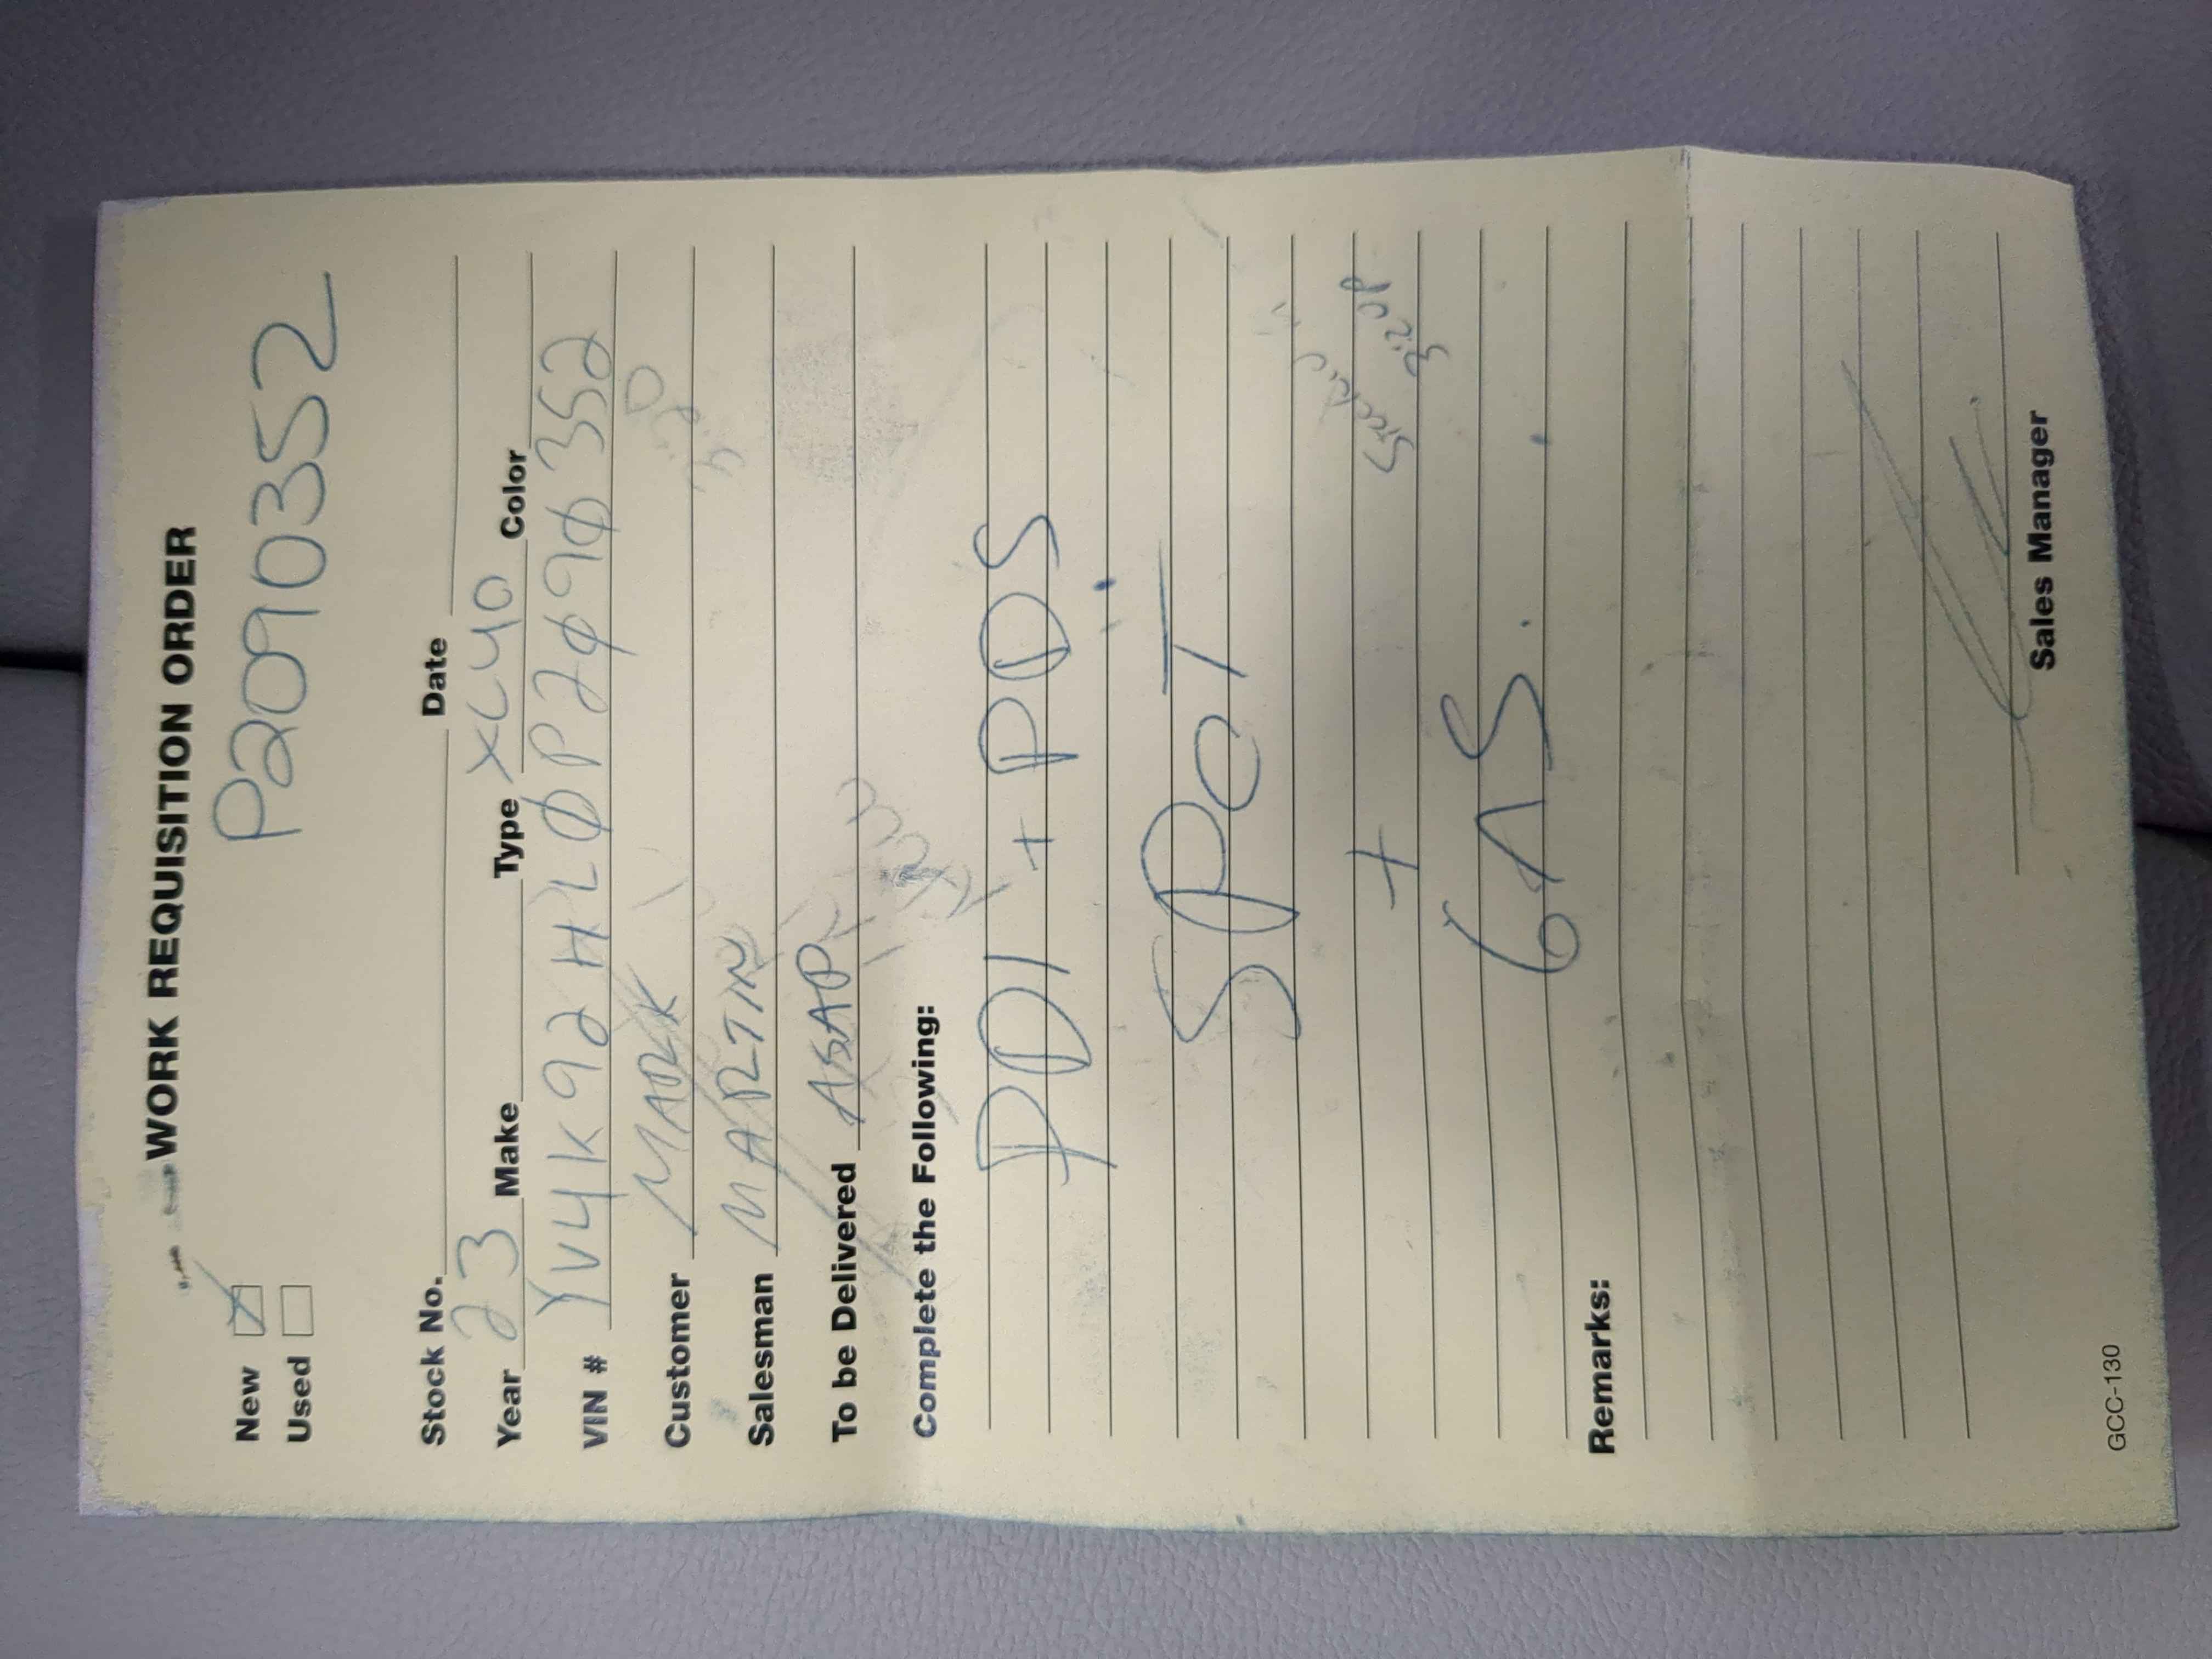 WORK REQUISITION ORDER
New
Used
P2090352
Stock No. Date
Year 23 Make Type XC40 Color
VIN # YV4K92HL0P2090352
Customer MARK
Salesman MARTIN
To be Delivered ASAP
Complete the Following:
PDI + PDS
SPOT
+
GAS.
Remarks:
Sales Manager
GCC-130